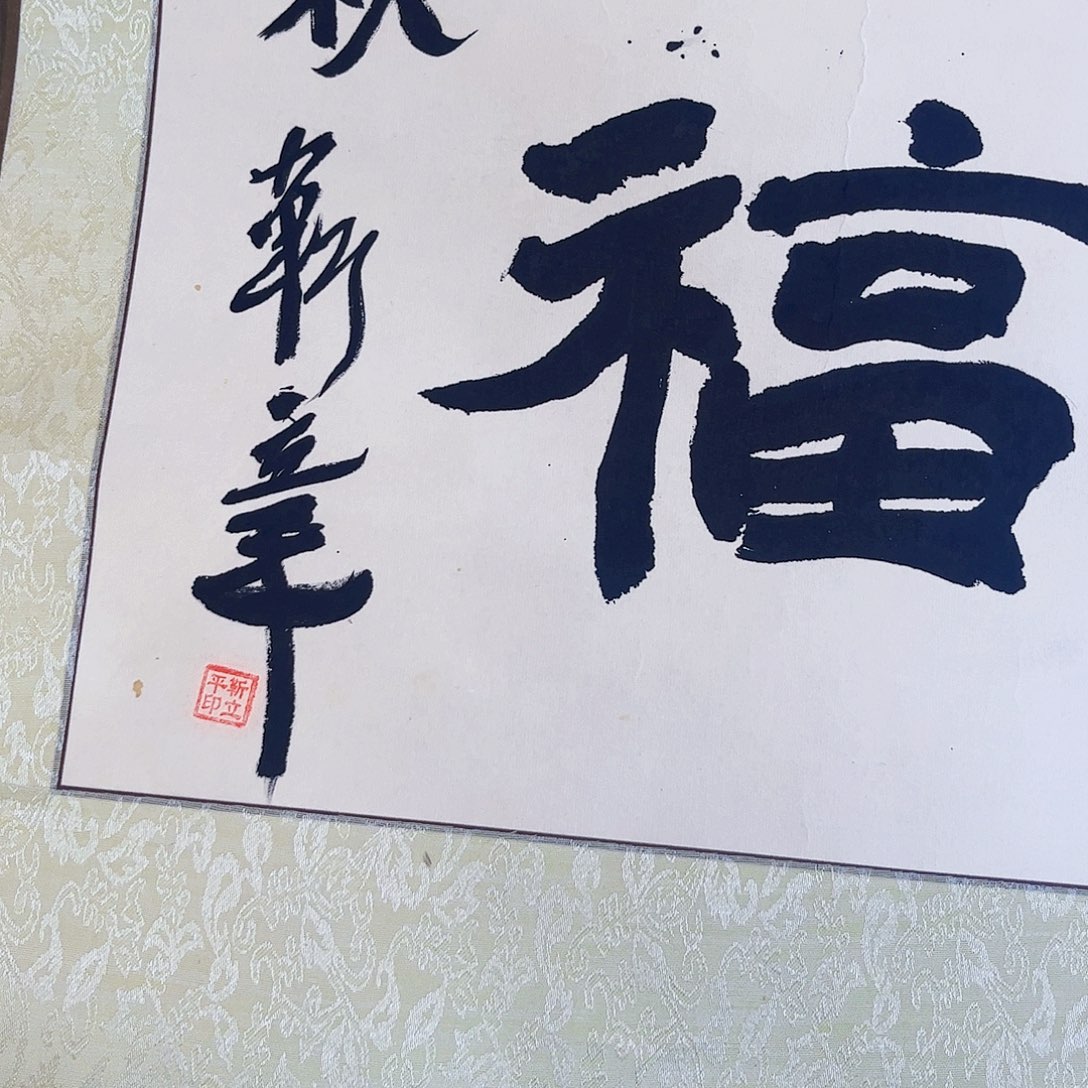 福
秋
靳立平
靳立平印